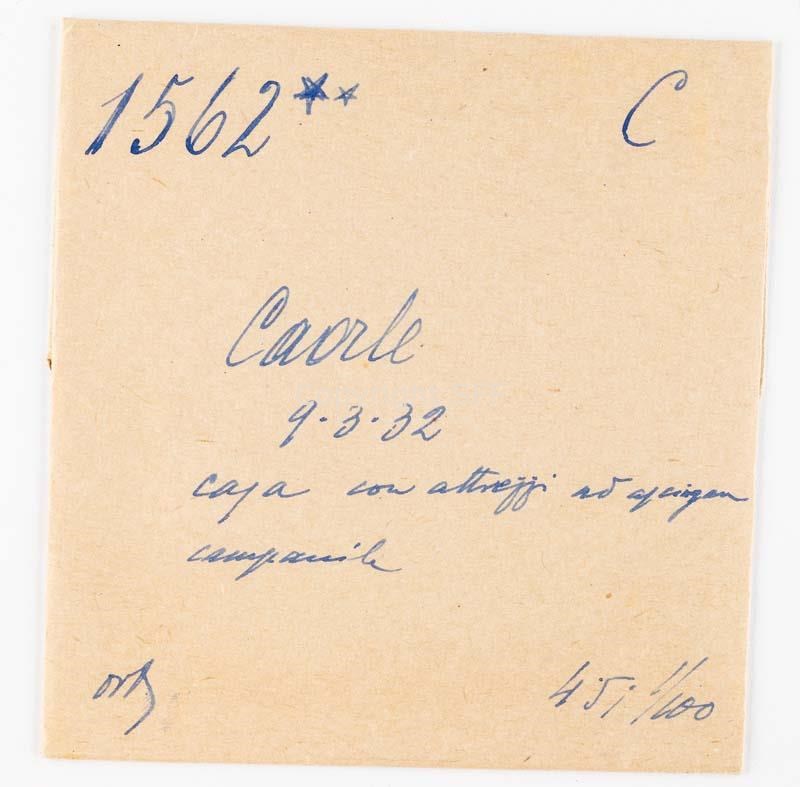 1562** C
Caorle
9.3.32
casa con attrezzi ad asciugare
campanile
orto
4,5; 1/100